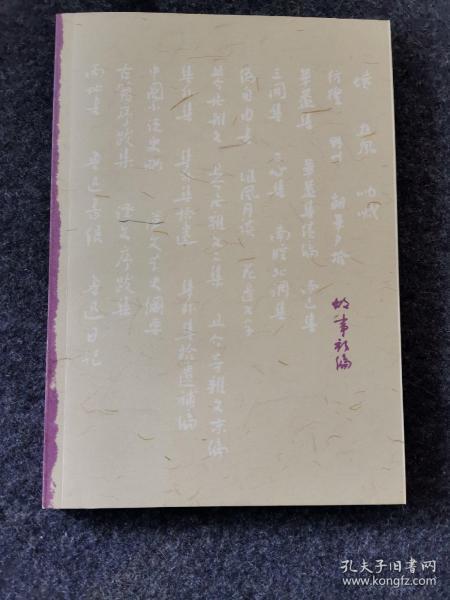 坟 热风 呐喊
彷徨 野草 朝花夕拾
故事新编
华盖集 华盖集续编 而已集
三闲集 二心集 南腔北调集
伪自由书 准风月谈 花边文学
且介亭杂文 且介亭杂文二集 且介亭杂文末编
集外集 集外集拾遗 集外集拾遗补编
中国小说史略 汉文学史纲要
古籍序跋集 译文序跋集
两地书 鲁迅书信 鲁迅日记
孔夫子旧书网
www.kongfz.com